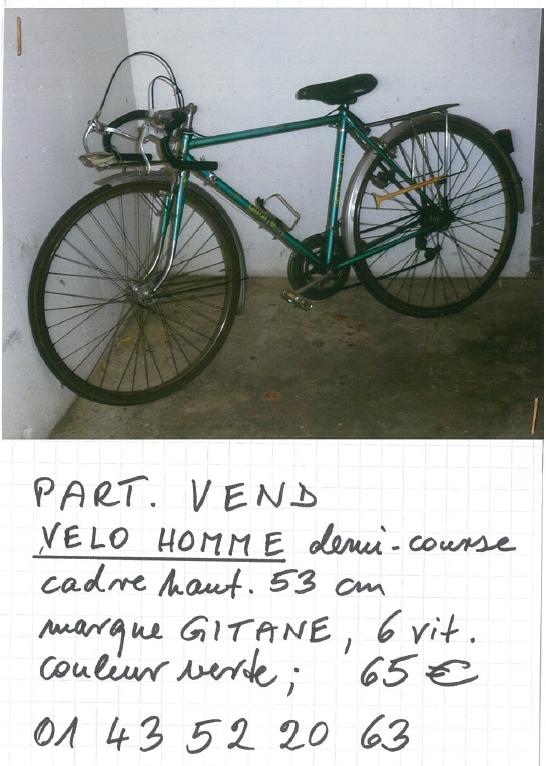 PART. VEND
VELO HOMME demi-course
cadre haut. 53 cm
marque GITANE, 6 vit.
couleur verte; 65 €
01 43 52 20 63